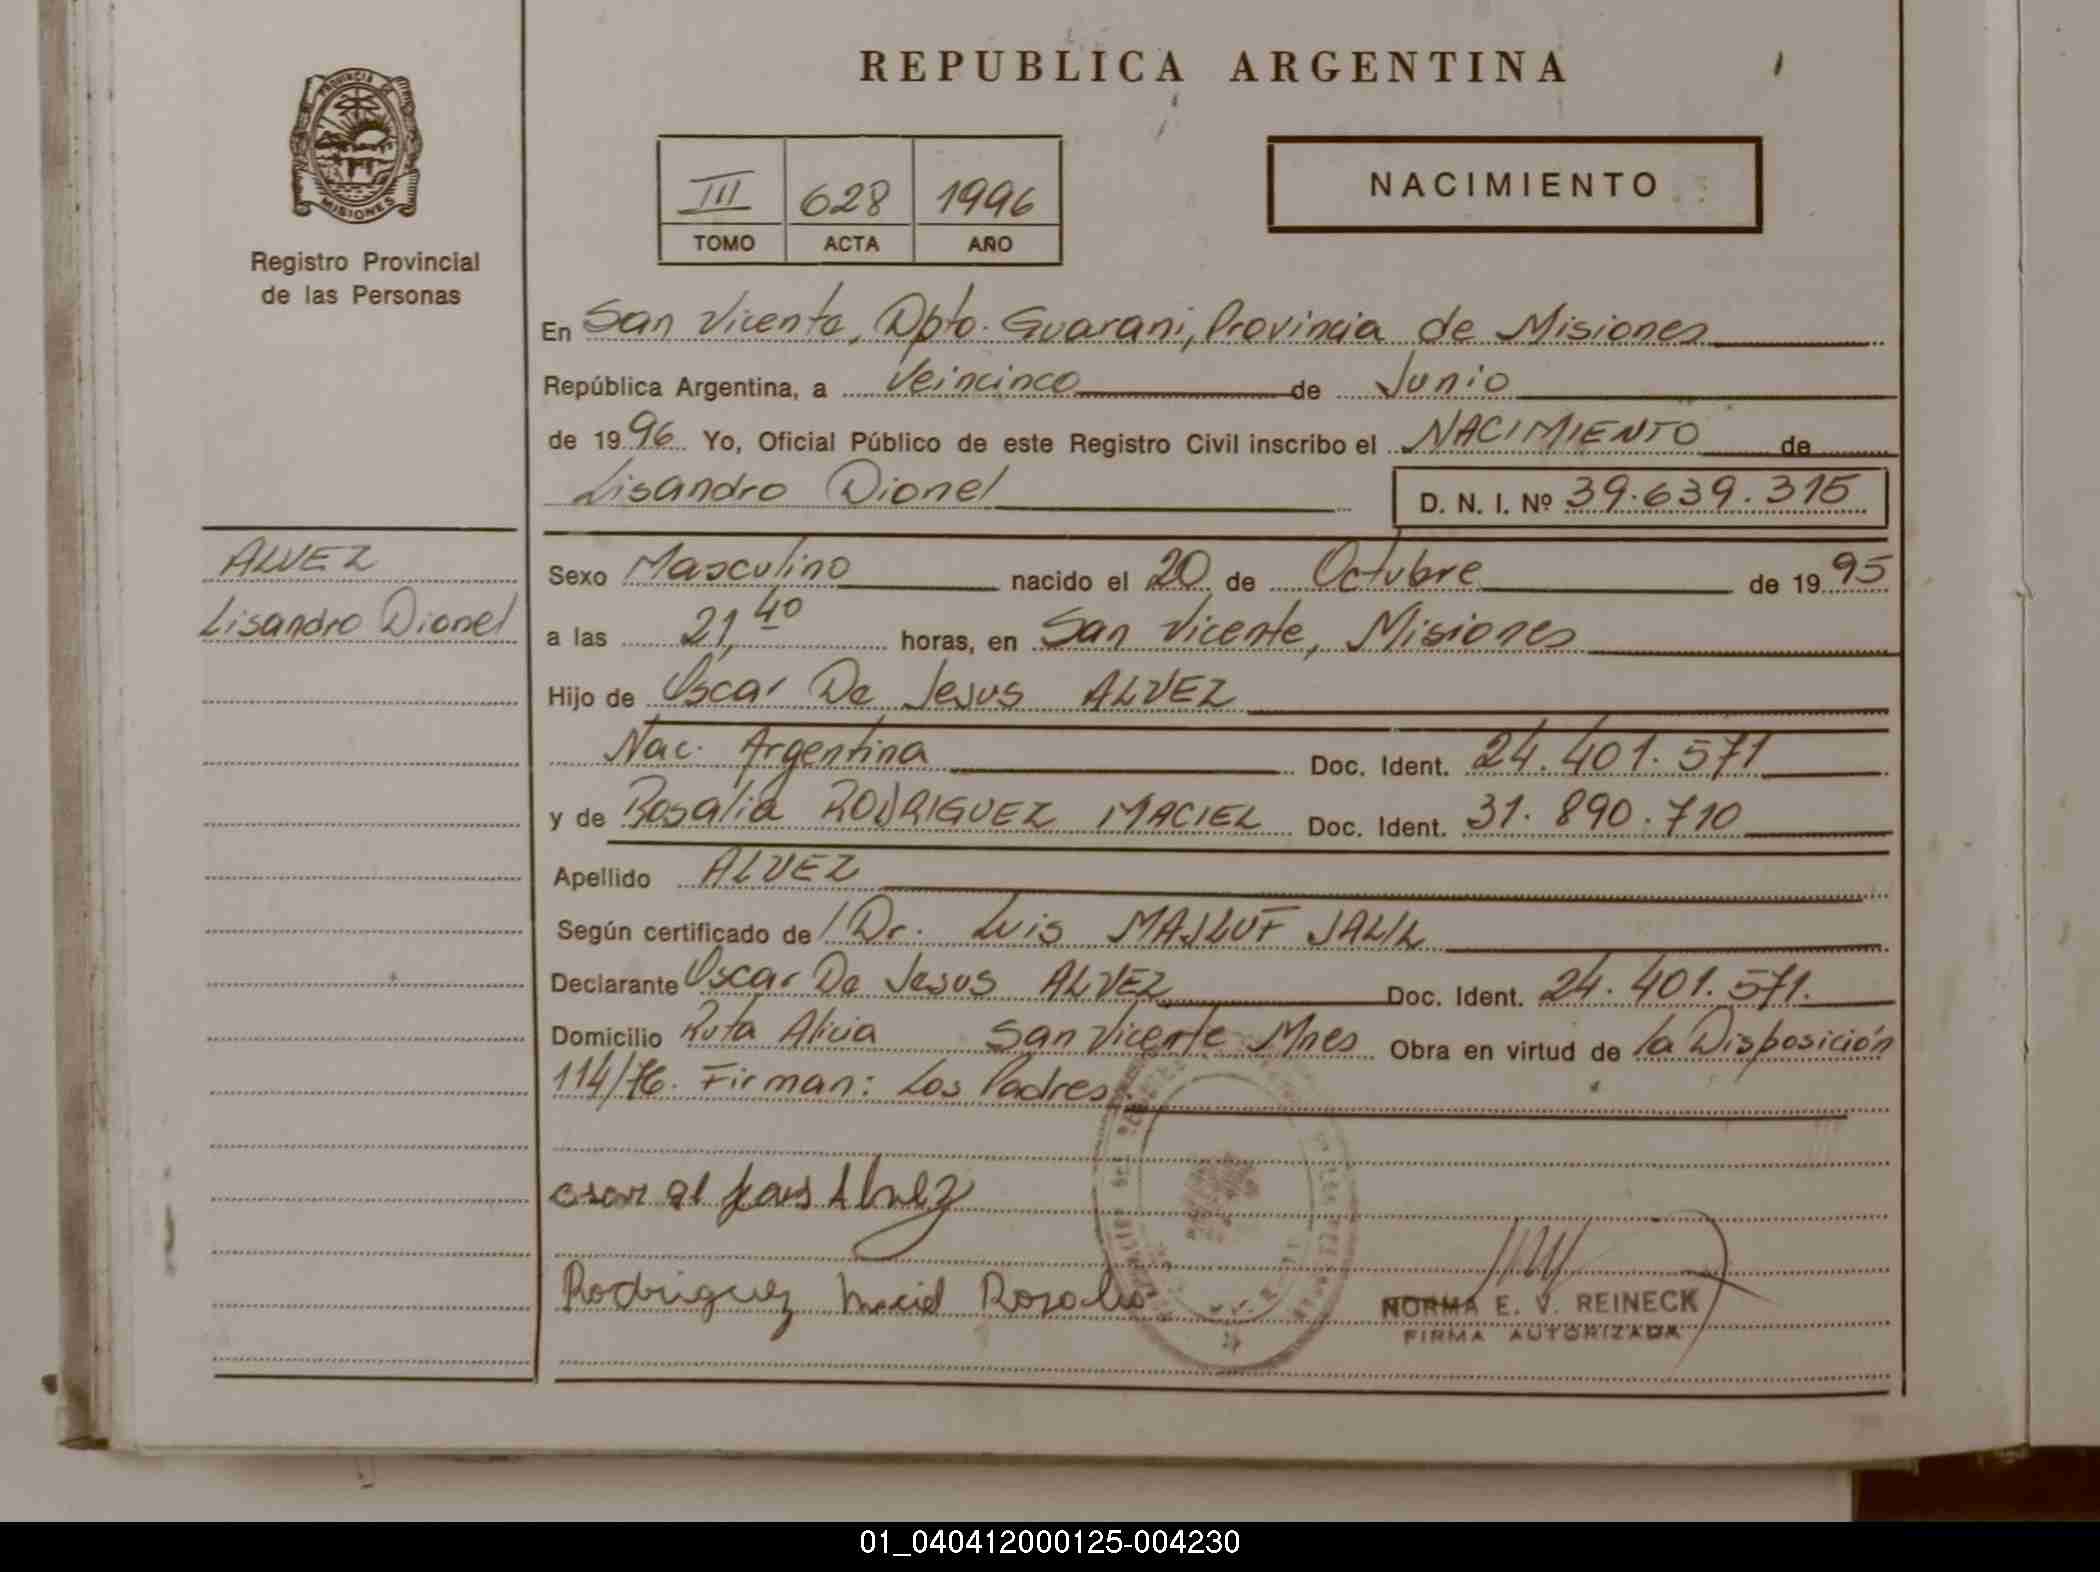 REPUBLICA ARGENTINA
PROVINCIA DE
MISIONES
Registro Provincial
de las Personas
III 628 1996
TOMO ACTA AÑO
NACIMIENTO
En San Vicente, Dpto. Guarani, Provincia de Misiones
República Argentina, a Veincinco de Junio
de 1996 Yo, Oficial Público de este Registro Civil inscribo el NACIMIENTO de
Lisandro Dionel D. N. I. Nº 39.639.315
ALVEZ
Lisandro Dionel
Sexo Masculino nacido el 20 de Octubre de 1995
a las 21,40 horas, en San Vicente, Misiones
Hijo de Oscar De Jesus ALVEZ
Nac. Argentina Doc. Ident. 24.401.571
y de Rosalia RODRIGUEZ MACIEL Doc. Ident. 31.890.710
Apellido ALVEZ
Según certificado de Dr. Luis MAJLUF JALIL
Declarante Oscar De Jesus ALVEZ Doc. Ident. 24.401.571.
Domicilio Ruta Alicia San Vicente Mnes Obra en virtud de la Disposición
114/76. Firman: Los Padres.
Alvez
Rodriguez Maciel Rosalia
NORMA E. V. REINECK
FIRMA AUTORIZADA
01_040412000125-004230